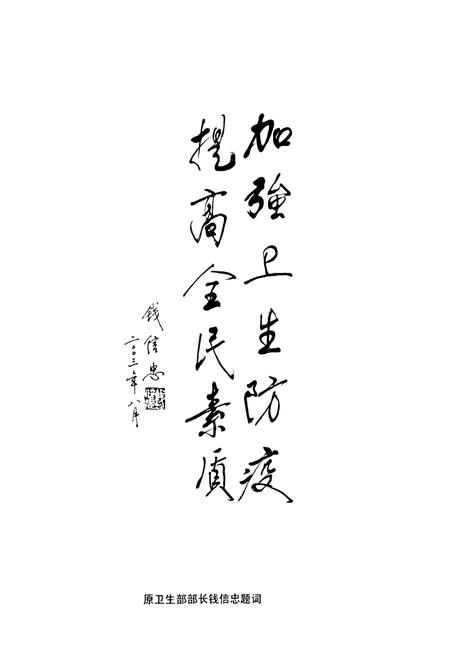 加強卫生防疫
提高全民素质
钱信忠
二〇〇三年八月
原卫生部部长钱信忠题词